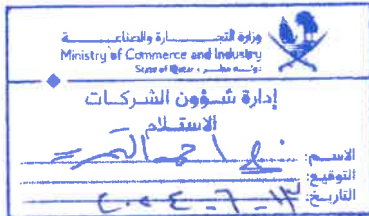 وزارة التجـــــارة والصناعـــــة
Ministry of Commerce and Industry
State of Qatar • دولــة قطــر
إدارة شــؤون الشركــات
الاستـلام
الاســم:
التوقيع:
التاريـخ: ٢٠٢٤-٦-١٣